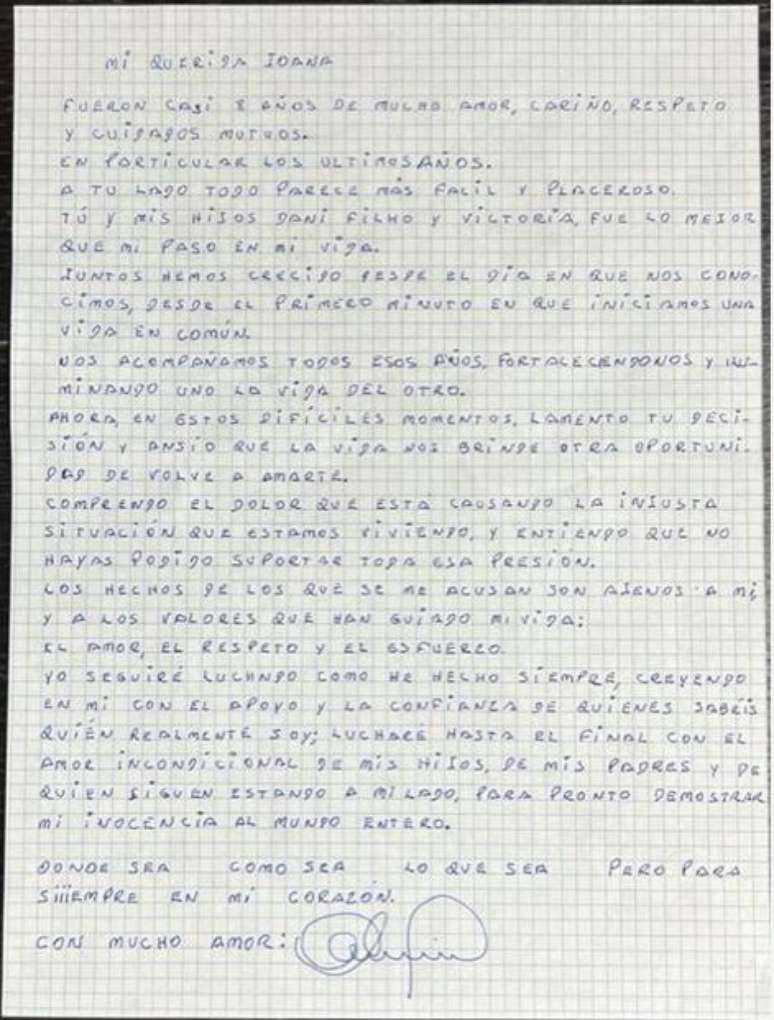 MI QUERIDA IOANA
FUERON CASI 8 AÑOS DE MUCHO AMOR, CARIÑO, RESPETO
Y CUIDADOS MUTUOS.
EN PARTICULAR LOS ULTIMOS AÑOS.
A TU LADO TODO PARECE MÁS FACIL Y PLACEROSO.
TÚ Y MIS HIJOS DANI FILHO Y VICTORIA, FUE LO MEJOR
QUE MI PASO EN MI VIDA.
JUNTOS HEMOS CRECIDO DESDE EL DÍA EN QUE NOS CONO-
CIMOS, DESDE EL PRIMERO MINUTO EN QUE INICIAMOS UNA
VIDA EN COMÚN.
NOS ACOMPAÑAMOS TODOS ESOS AÑOS, FORTALECENDONOS Y ILU-
MINANDO UNO LA VIDA DEL OTRO.
AHORA, EN ESTOS DIFÍCILES MOMENTOS, LAMENTO TU DECI-
SIÓN Y ANSÍO QUE LA VIDA NOS BRINDE OTRA OPORTUNI-
DAD DE VOLVE A AMARTE.
COMPREENDO EL DOLOR QUE ESTA CAUSANDO LA INJUSTA
SITUACIÓN QUE ESTAMOS VIVIENDO, Y ENTIENDO QUE NO
HAYAS PODIDO SUPORTAR TODA ESA PRESIÓN.
LOS HECHOS DE LOS QUE SE ME ACUSAN SON AJENOS A MÍ
Y A LOS VALORES QUE HAN GUIADO MI VIDA:
EL AMOR, EL RESPETO Y EL ESFUERZO.
YO SEGUIRÉ LUCHNDO COMO HE HECHO SIEMPRE, CREYENDO
EN MI CON EL APOYO Y LA CONFIANZA DE QUIENES SABÉIS
QUIÉN REALMENTE SOY; LUCHARÉ HASTA EL FINAL CON EL
AMOR INCONDICIONAL DE MIS HIJOS, DE MIS PADRES Y DE
QUIEN SIGUEN ESTANDO A MI LADO, PARA PRONTO DEMOSTRAR
MI INOCENCIA AL MUNDO ENTERO.
DONDE SEA COMO SEA LO QUE SEA PERO PARA
SIIIEMPRE EN MI CORAZÓN.
CON MUCHO AMOR: